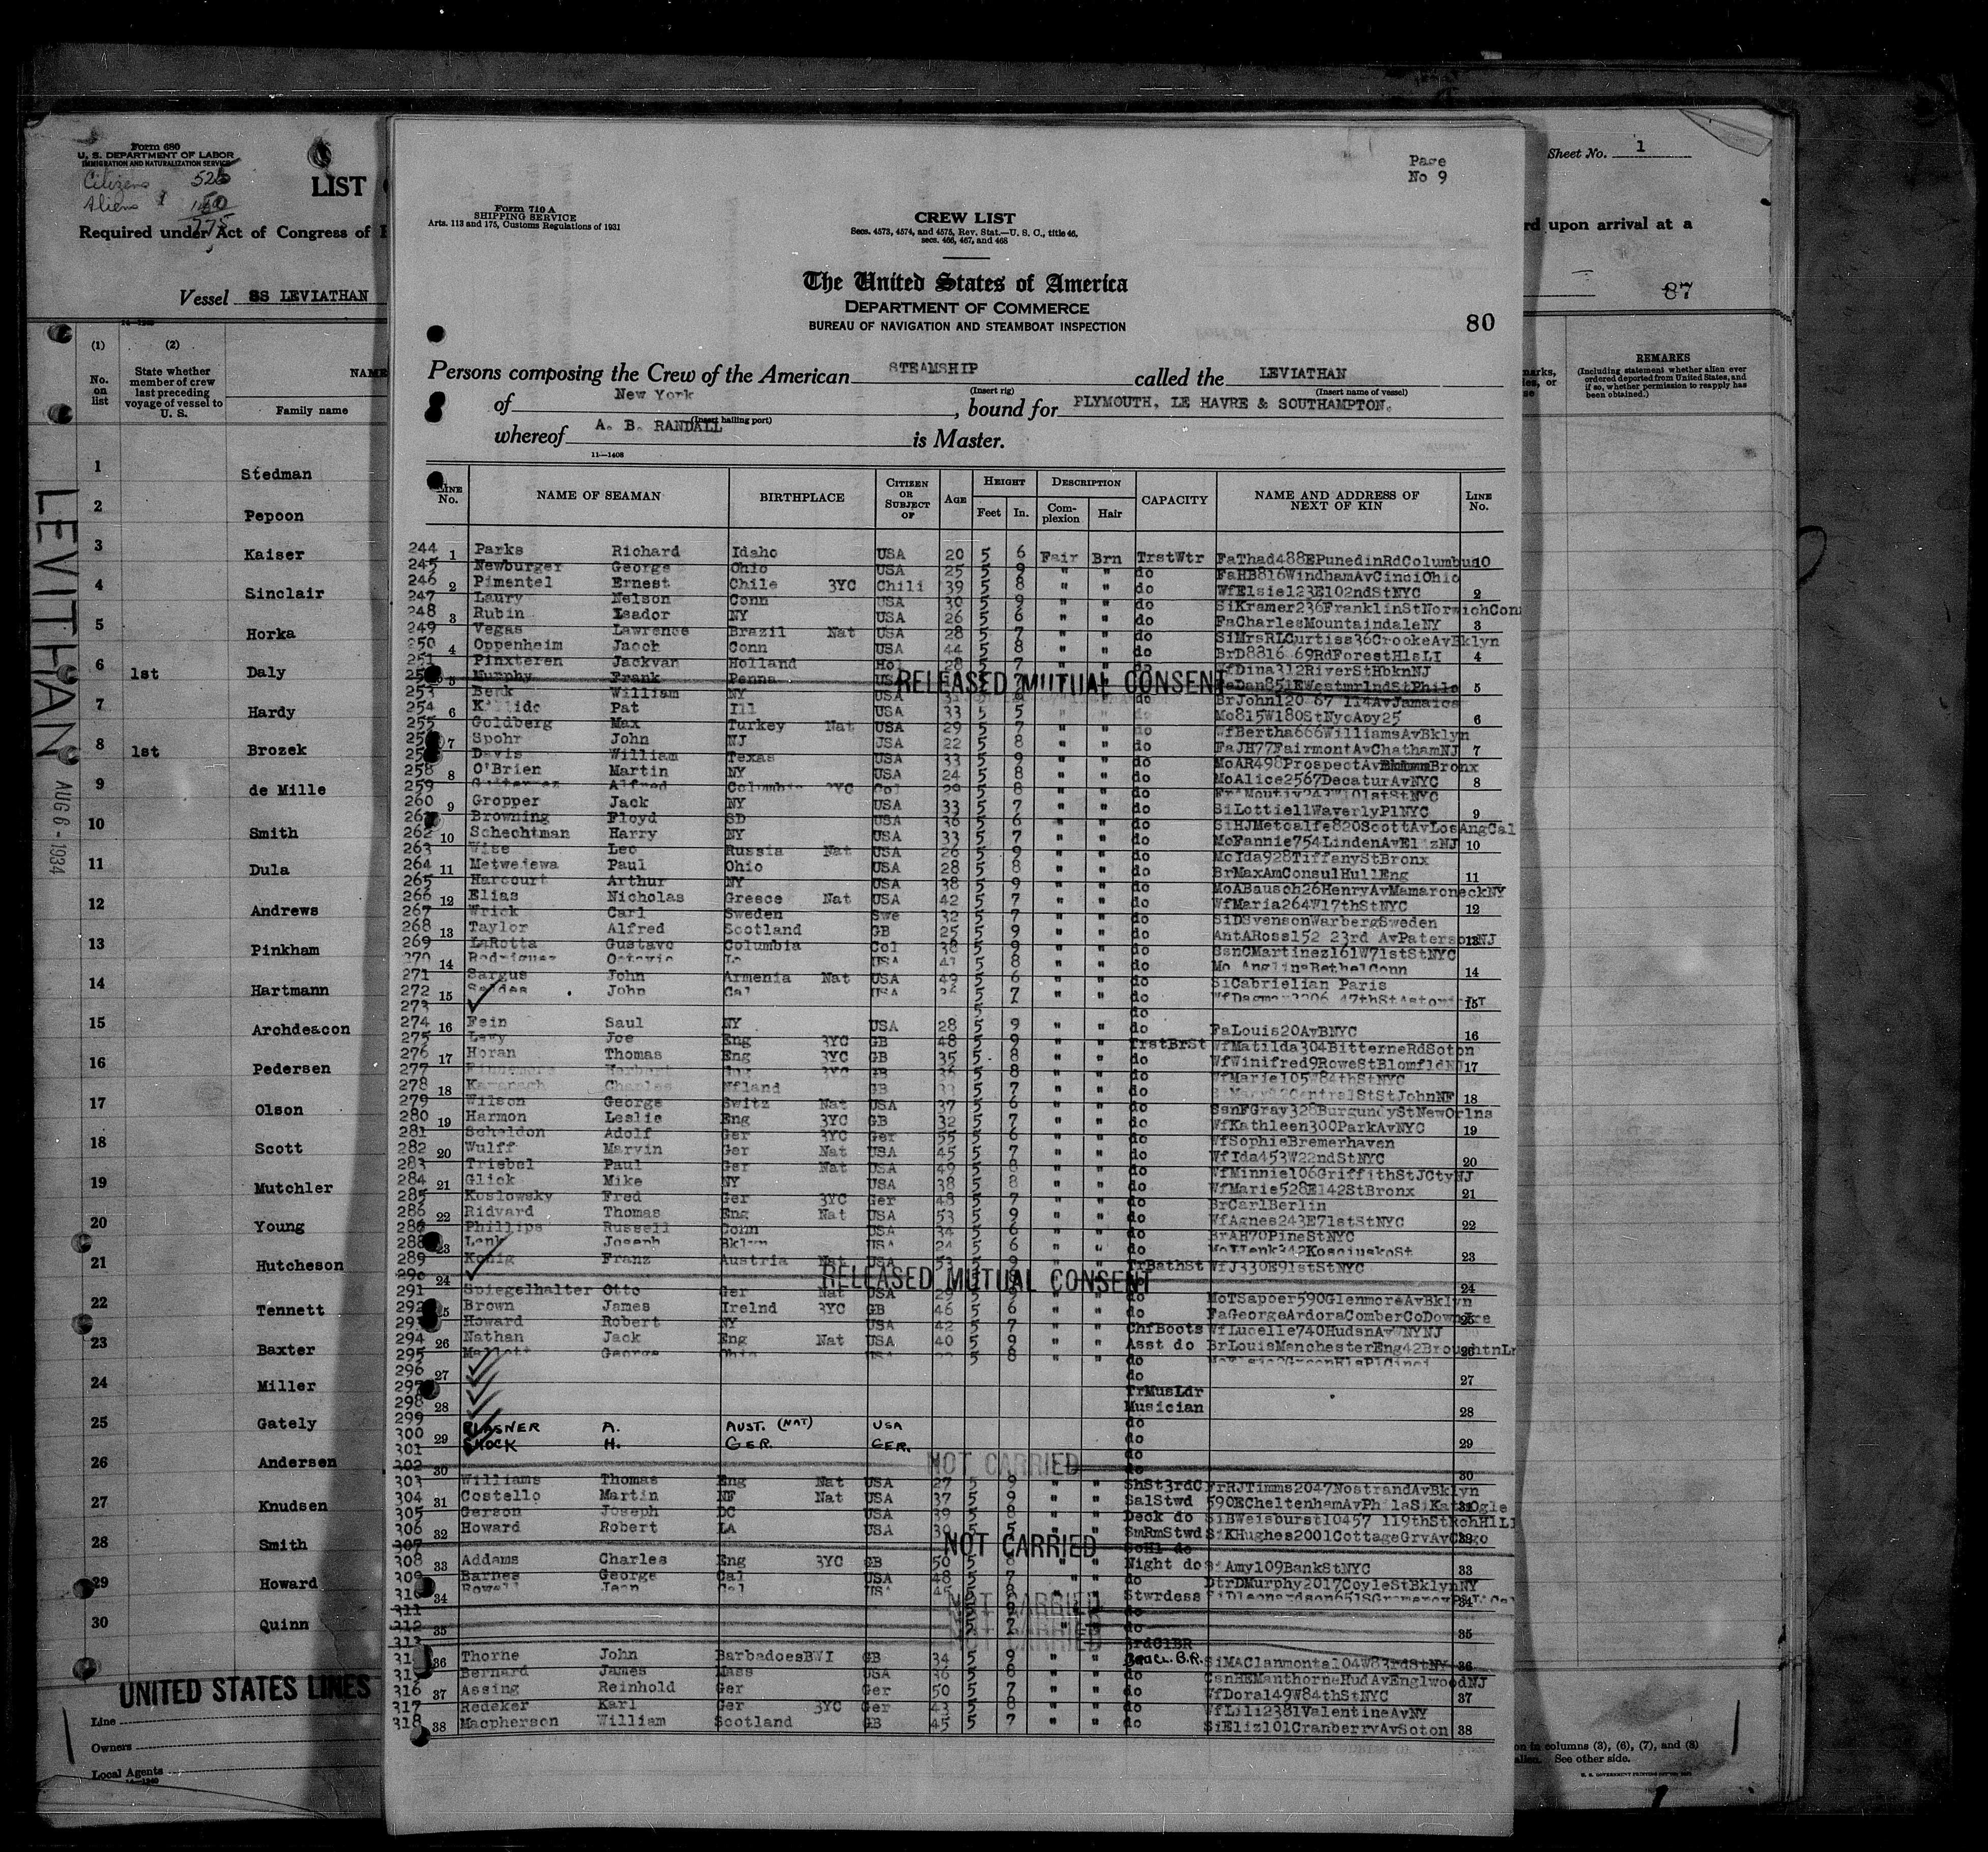 Form 680
U. S. DEPARTMENT OF LABOR
IMMIGRATION AND NATURALIZATION SERVICE
Citizens 526
Aliens
775
LIST
Required under Act of Congress of
Vessel SS LEVIATHAN
(1) (2)
No. on list
State whether member of crew last preceding voyage of vessel to U. S.
NAME
Family name
LEVITHAN
AUG 6 - 1934
1 Stedman
2 Pepoon
3 Kaiser
4 Sinclair
5 Horka
6 1st Daly
7 Hardy
8 1st Brozek
9 de Mille
10 Smith
11 Dula
12 Andrews
13 Pinkham
14 Hartmann
15 Archdeacon
16 Pedersen
17 Olson
18 Scott
19 Mutchler
20 Young
21 Hutcheson
22 Tennett
23 Baxter
24 Miller
25 Gately
26 Andersen
27 Knudsen
28 Smith
29 Howard
30 Quinn
UNITED STATES LINES
Line
Owners
Local Agents
Page
No 9
Form 710 A
SHIPPING SERVICE
Arts. 113 and 175, Customs Regulations of 1931
CREW LIST
Secs. 4573, 4574, and 4575, Rev. Stat.—U. S. C., title 46,
secs. 466, 467, and 468
The United States of America
DEPARTMENT OF COMMERCE
BUREAU OF NAVIGATION AND STEAMBOAT INSPECTION
80
Persons composing the Crew of the American STEAMSHIP called the LEVIATHAN
(Insert rig) (Insert name of vessel)
of New York, bound for PLYMOUTH, LE HAVRE & SOUTHAMPTON.
(Insert hailing port)
whereof A. B. RANDALL is Master.
11—1408
LINE No. NAME OF SEAMAN BIRTHPLACE CITIZEN OR SUBJECT OF AGE HEIGHT Feet In. DESCRIPTION Complexion Hair CAPACITY NAME AND ADDRESS OF NEXT OF KIN LINE No.
244 1 Parks Richard Idaho USA 20 5 6 Fair Brn TrstWtr FaThad488EPunedinRdColumbus
245 Newburger George Ohio USA 25 5 9 " " do FaHB816WindhamAvCinciOhio
246 2 Pimentel Ernest Chile 3YC Chili 39 5 8 " " do WfElsie123E102ndStNYC 2
247 Laury Nelson Conn USA 30 5 9 " " do SiKramer236FranklinStNorwichConn
248 3 Rubin Isador NY USA 26 5 6 " " do FaCharlesMountaindaleNY 3
249 Vegas Lawrence Brazil Nat USA 28 5 7 " " do SiMrsRLCurtiss36CrookeAvBklyn
250 4 Oppenheim Jacob Conn USA 44 5 8 " " do BrD8816 69RdForestHlsLI 4
251 Pinxteren Jackvan Holland Hol 28 5 7 " " do WfDina312RiverStHbknNJ
5 Murphy Frank Penna RELEASED MUTUAL CONSENT 5
253 Berk William NY USA do BrJohn120 67 114AvJamaica
254 6 Pat Ill USA 33 5 5 " " do Mo815W180StNycApy25 6
255 Goldberg Max Turkey Nat USA 29 5 7 " " do WfBertha666WilliamsAvBklyn
7 Spohr John NJ USA 22 5 8 " " do FaJH77FairmontAvChathamNJ 7
Davis William Texas USA 33 5 9 " " do MoAR498ProspectAvBronx
258 8 O'Brien Martin NY USA 24 5 8 " " do MoAlice2567DecaturAvNYC 8
259 Alfred Columbia 3YC Col 29 5 8 " " do
260 9 Gropper Jack NY USA 33 5 7 " " do SiLottie11WaverlyPlNYC 9
Browning Floyd SD USA 36 5 6 " " do SiHJMetcalfe820ScottAvLosAngCal
262 10 Schechtman Harry NY USA 33 5 7 " " do MoFannie754LindenAvElizNJ 10
263 Wise Leo Russia Nat USA 26 5 9 " " do McIda928TiffanyStBronx
264 11 Metwejewa Paul Ohio USA 28 5 8 " " do BrMaxAmConsulHullEng 11
265 Harcourt Arthur NY USA 38 5 9 " " do MoABausch26HenryAvMamaroneckNY
266 12 Elias Nicholas Greece Nat USA 42 5 7 " " do WfMaria264W17thStNYC 12
267 Wrick Carl Sweden Swe 32 5 7 " " do SiDSvensonWarbergSweden
268 13 Taylor Alfred Scotland GB 25 5 9 " " do AntARoss152 23rd AvPatersonNJ
269 LaRotta Gustavo Columbia Col 38 5 9 " " do CsnCMartinez161W71stStNYC
270 14 Rodriguez Octavio La USA 5 8 " " do 14
271 Sargus John Armenia Nat USA 49 5 6 " " do SiCabrielian Paris
272 15 John Cal USA 5 7 " " do 15
273 5 do
274 16 Fein Saul NY USA 28 5 9 " " do FaLouis20AvBNYC 16
275 Levy Joe Eng 3YC GB 48 5 9 " " TrstBrSt WfMatilda304BitterneRdSoton
276 17 Horan Thomas Eng 3YC GB 35 5 8 " " do WfWinifred9RoweStBlomfldNJ 17
277 Herbert Eng 3YC GB 36 5 8 " " do WfMarie105W84thStNYC
278 18 Kavanagh Charles Nfland GB 33 5 7 " " do 18
279 Wilson George Switz Nat USA 37 5 6 " " do CsnFGray328BurgundyStNewOrlns
280 19 Harmon Leslie Eng 3YC GB 32 5 7 " " do WfKathleen300ParkAvNYC 19
281 Scheldon Adolf Ger 3YC Ger 55 5 6 " " do WfSophieBremerhaven
282 20 Wulff Marvin Ger Nat USA 45 5 7 " " do WfIda453W22ndStNYC 20
283 Triebel Paul Ger Nat USA 49 5 8 " " do WfMinnie106GriffithStJCtyNJ
284 21 Glick Mike NY USA 38 5 8 " " do WfMarie528E142StBronx 21
285 Koslowsky Fred Ger 3YC Ger 48 5 7 " " do BrCarlBerlin
286 22 Ridvard Thomas Eng Nat USA 53 5 9 " " do WfAgnes243E71stStNYC 22
Phillips Russell Conn USA 34 5 6 " " do BrAH70PineStNYC
288 23 Lenk Joseph Bklyn USA 24 5 6 " " do 23
289 Konig Franz Austria Nat USA 53 5 9 " " TrBathSt WfJ330E91stStNYC
290 24 RELEASED MUTUAL CONSENT 24
291 Spiegelhalter Otto Ger Nat USA 29 5 " " do MoTSapoer590GlenmoreAvBklyn
292 Brown James Irelnd 3YC GB 46 5 6 " " do FaGeorgeArdoraComberCoDownIre
Howard Robert NY USA 42 5 7 " " ChfBoots WfLucelle740HudsnAvWNYNJ
294 26 Nathan Jack Eng Nat USA 40 5 9 " " Asst do BrLouisManchesterEng42BroughtnLn
295 Mallett George Ohio USA 5 8 " " do
296 27 do 27
297 TrMusLdr
298 28 Musician 28
299 do
300 29 PLASNER A. AUST. (NAT) USA do 29
301 SHOCK H. GER. GER. do
302 30 NOT CARRIED do 30
303 Williams Thomas Eng Nat USA 27 5 9 " " ShSt3rdC FrRJTimms2047NostrandAvBklyn
304 31 Costello Martin NF Nat USA 37 5 9 " " SalStwd
305 Gerson Joseph DC USA 39 5 8 " " Deck do
306 32 Howard Robert LA USA 39 5 5 " " SmRmStwd SiKHughes2001CottageGrvAvChgo
307 NOT CARRIED
308 33 Addams Charles Eng 3YC GB 50 5 8 " " Night do SiAmy109BankStNYC 33
309 Barnes George Cal USA 48 5 7 " " do DtrDMurphy2017CoyleStBklynNY
310 34 Rowell Jean Cal USA 45 5 8 " " Stwrdess 34
311 NOT CARRIED do
312 35 NOT CARRIED do 35
313 NOT CARRIED 3rdClBR
36 Thorne John BarbadoesBWI GB 34 5 9 " " 3RD CL. B.R. SiMAClanmonte104W83rdStNY 36
Bernard James Mass USA 36 5 8 " " do CsnHEManthorneHudAvEnglwoodNJ
316 37 Assing Reinhold Ger Ger 50 5 7 " " do WfDora149W84thStNYC 37
317 Redeker Karl Ger 3YC Ger 43 5 8 " " do WfLili2381ValentineAvNY
318 38 Macpherson William Scotland GB 45 5 7 " " do SiEliz101CranberryAvSoton 38
Sheet No. 1
rd upon arrival at a
87
REMARKS
(Including statement whether alien ever ordered deported from United States, and if so, whether permission to reapply has been obtained.)
on in columns (3), (6), (7), and (8)
alien. See other side.